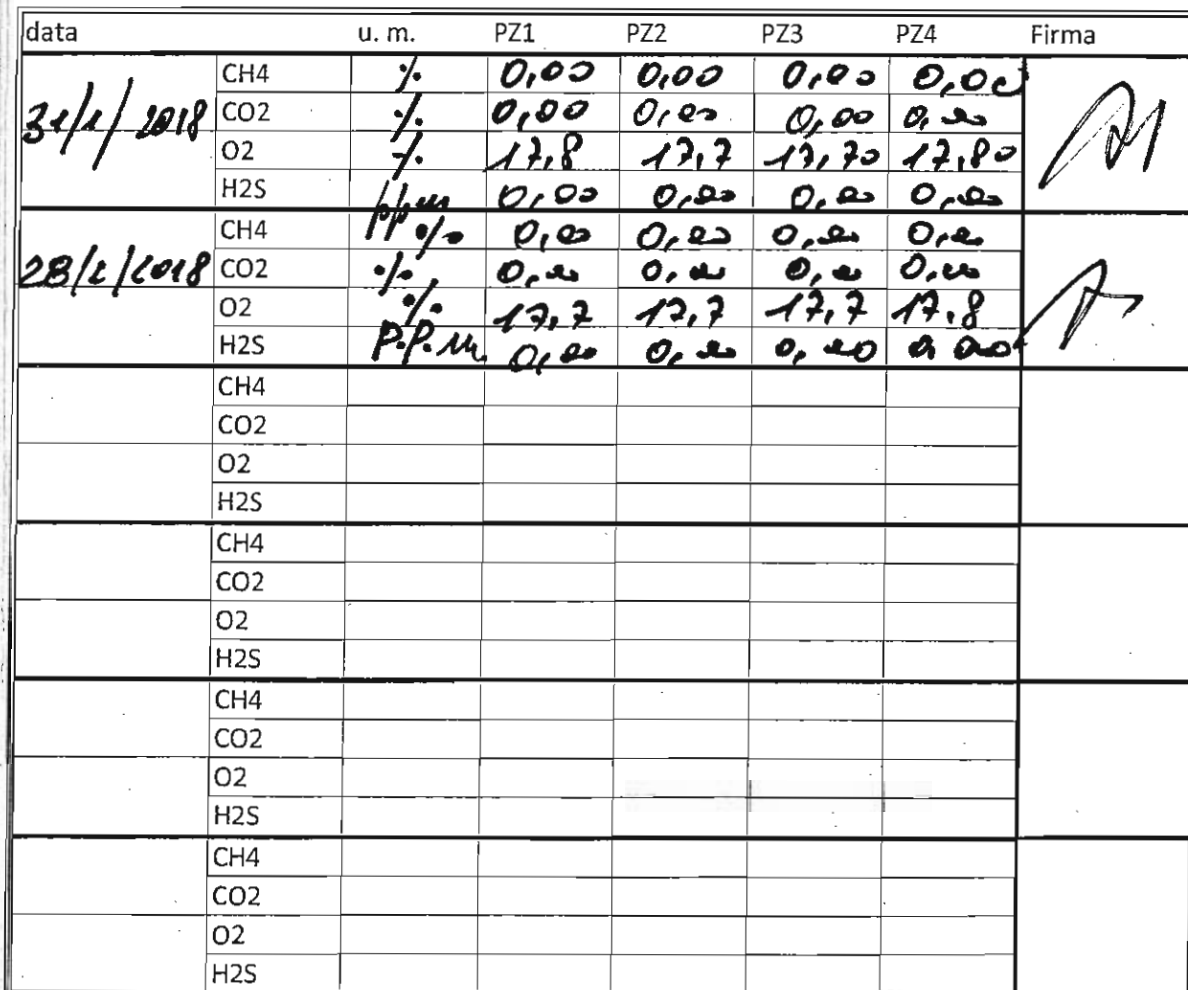 data u. m. PZ1 PZ2 PZ3 PZ4 Firma
31/1/2018 CH4 % 0,00 0,00 0,00 0,00
CO2 % 0,00 0,00 0,00 0,00
O2 % 17,8 17,7 17,70 17,80
H2S ppm 0,00 0,00 0,00 0,00
28/2/2018 CH4 % 0,00 0,00 0,00 0,00
CO2 % 0,00 0,00 0,00 0,00
O2 % 17,7 17,7 17,7 17,8
H2S P.P.M. 0,00 0,00 0,00 0,00
CH4
CO2
O2
H2S
CH4
CO2
O2
H2S
CH4
CO2
O2
H2S
CH4
CO2
O2
H2S